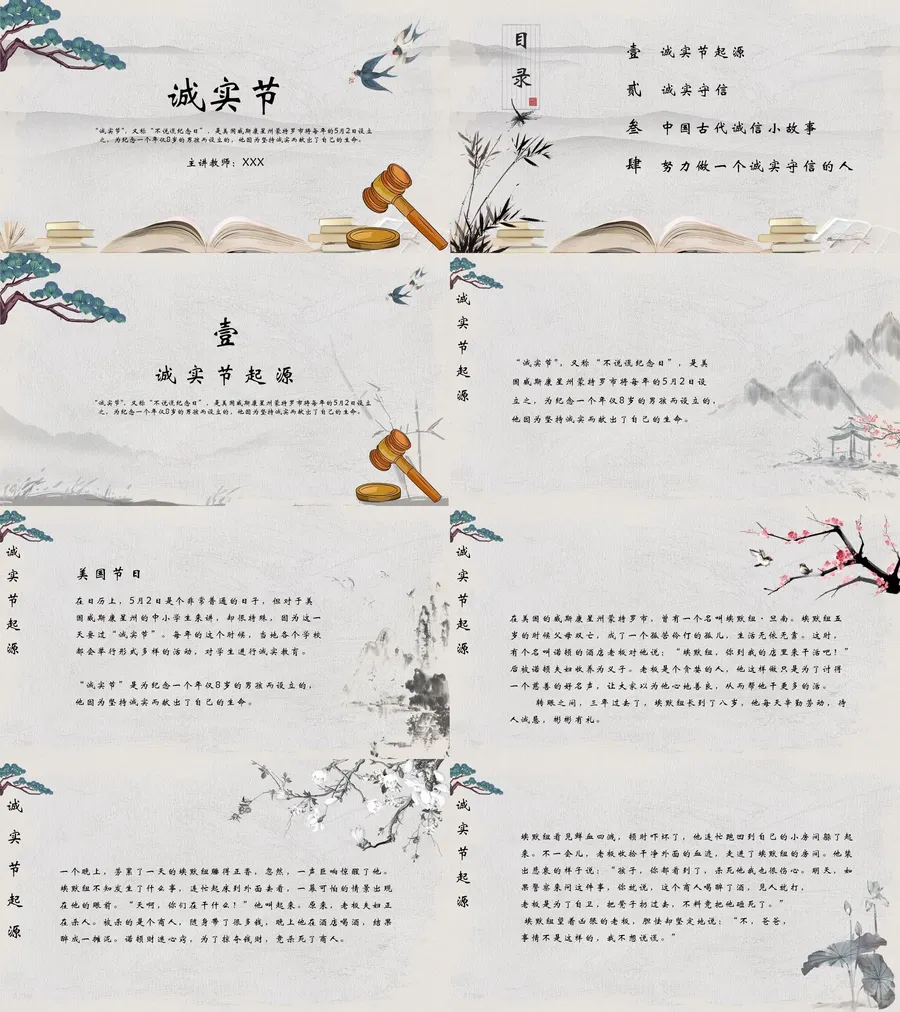 诚实节
“诚实节”,又称“不说谎纪念日”,是美国威斯康星州蒙特罗市将每年的5月2日设立
之,为纪念一个年仅8岁的男孩而设立的,他因为坚持诚实而献出了自己的生命。
主讲教师:XXX
目录
壹 诚实节起源
贰 诚实守信
叁 中国古代诚信小故事
肆 努力做一个诚实守信的人
壹
诚实节起源
“诚实节”,又称“不说谎纪念日”,是美国威斯康星州蒙特罗市将每年的5月2日设立
之,为纪念一个年仅8岁的男孩而设立的,他因为坚持诚实而献出了自己的生命。
诚实节起源
“诚实节”,又称“不说谎纪念日”,是美
国威斯康星州蒙特罗市将每年的5月2日设
立之,为纪念一个年仅8岁的男孩而设立的,
他因为坚持诚实而献出了自己的生命。
诚实节起源
美国节日
在日历上,5月2日是个非常普通的日子,但对于美
国威斯康星州的中小学生来讲,却很特殊,因为这一
天要过“诚实节”。每年的这个时候,当地各个学校
都会举行形式多样的活动,对学生进行诚实教育。
“诚实节”是为纪念一个年仅8岁的男孩而设立的,
他因为坚持诚实而献出了自己的生命。
诚实节起源
在美国的威斯康星州蒙特罗市,曾有一个名叫埃默纽·旦南。埃默纽五
岁的时候父母双亡,成了一个孤苦伶仃的孤儿,生活无依无靠。这时,
有个名叫诺顿的酒店老板对他说:“埃默纽,你到我的店里来干活吧!”
后被诺顿夫妇收养为义子。老板是个贪婪的人,他这样做只是为了讨得
一个慈善的好名声,让大家以为他心地善良,从而帮他干更多的活。
转眼之间,三年过去了,埃默纽长到了八岁,他每天辛勤劳动,待
人诚恳,彬彬有礼。
诚实节起源
一个晚上,劳累了一天的埃默纽睡得正香,忽然,一声巨响惊醒了他。
埃默纽不知发生了什么事,连忙起床到外面去看,一幕可怕的情景出现
在他的眼前。“天啊,你们在干什么!”他叫起来。原来,老板夫妇正
在杀人。被杀的是个商人,随身带了很多钱,晚上他在酒店喝酒,结果
醉成一摊泥。诺顿财迷心窍,为了掠夺钱财,竟杀死了商人。
诚实节起源
埃默纽看见鲜血四溅,顿时吓坏了,他连忙跑回到自己的小房间躲了起
来。不一会儿,老板收拾干净外面的血迹,走进了埃默纽的房间。他装
出悲哀的样子说:“孩子,你都看到了,杀死他我也很伤心。明天,如
果警察来问这件事,你就说,这个商人喝醉了酒,见人就打,
老板是为了自卫,把凳子扔过去,不料竟把他砸死了。”
埃默纽望着凶狠的老板,胆怯却坚定地说:“不,爸爸,
事情不是这样的,我不想说谎。”